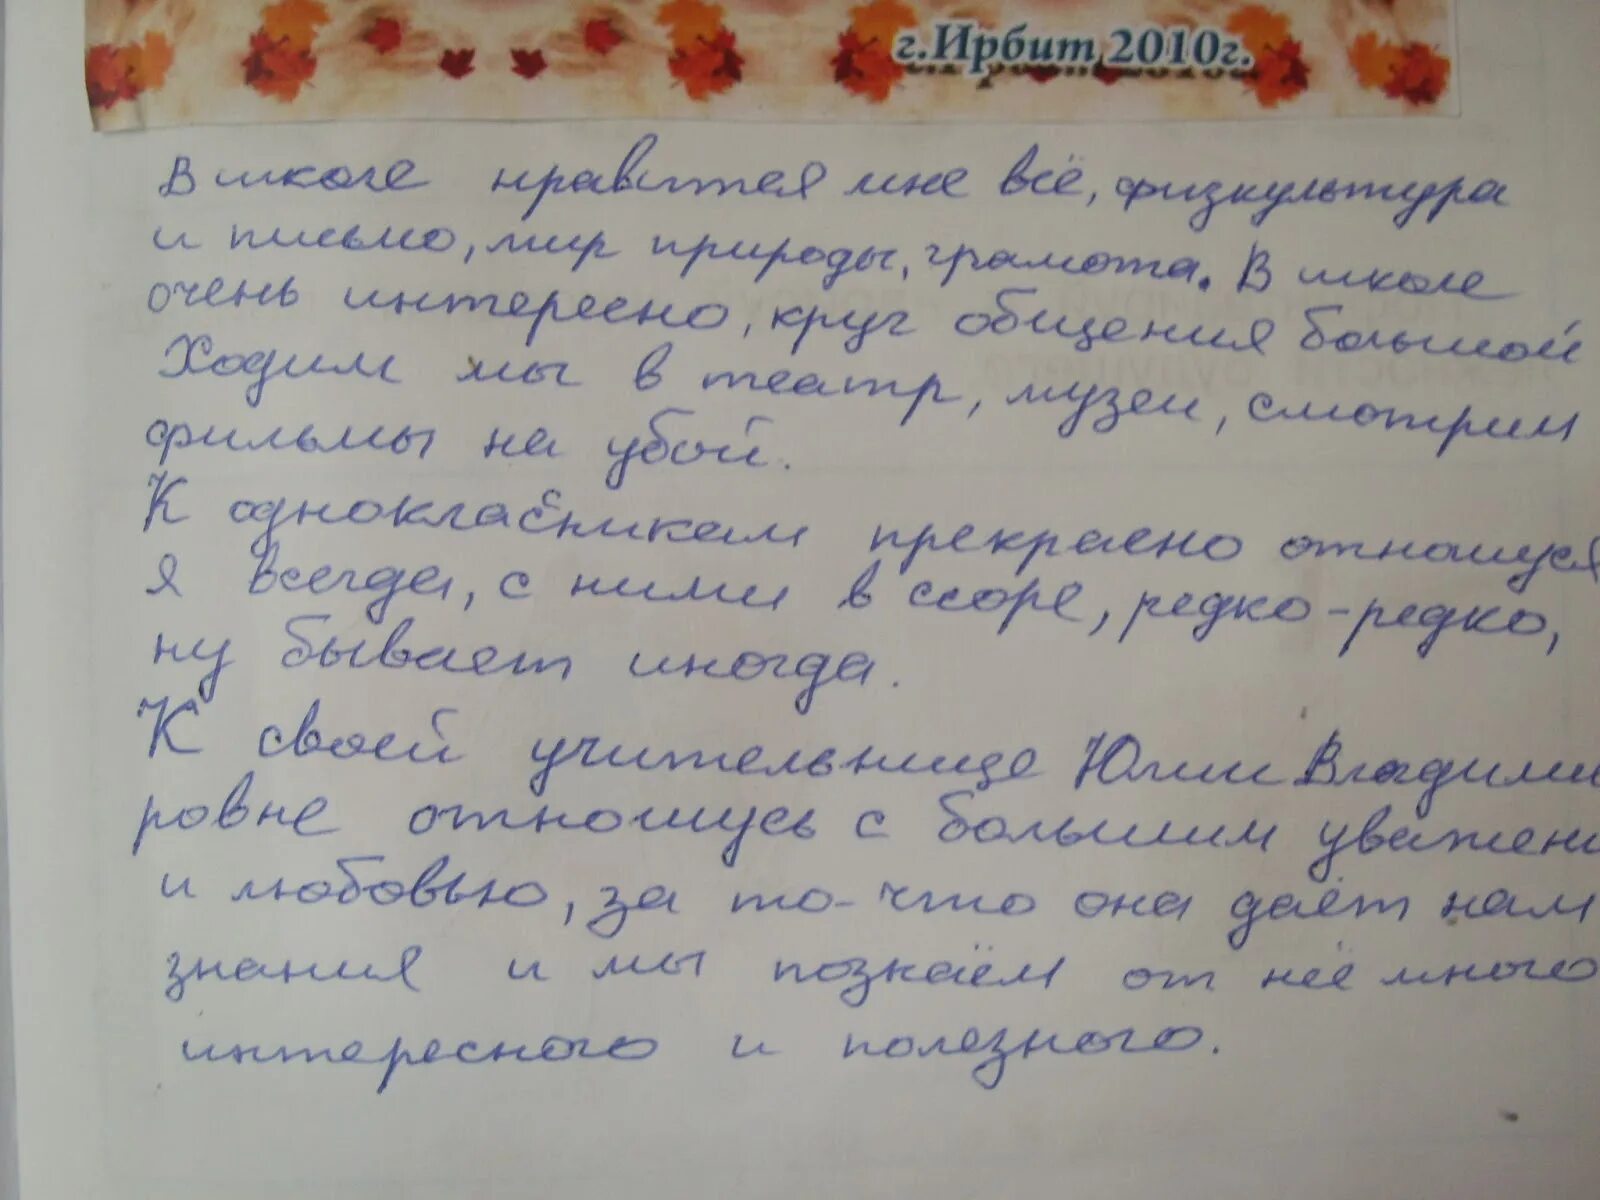 г.Ирбит 2010г.
В школе нравится мне всё, физкультура
и письмо, мир природы, грамота. В школе
очень интересно, круг общения большой
Ходим мы в театр, музеи, смотрим
фильмы на убой.
К однокласникам прекрасно отношуся
я всегда, с ними в ссоре, редко-редко,
ну бывает иногда.
К своей учительнице Юлии Владими
ровне отношусь с большим уважени
и любовью, за то-что она даёт нам
знания и мы познаём от неё много
интересного и полезного.